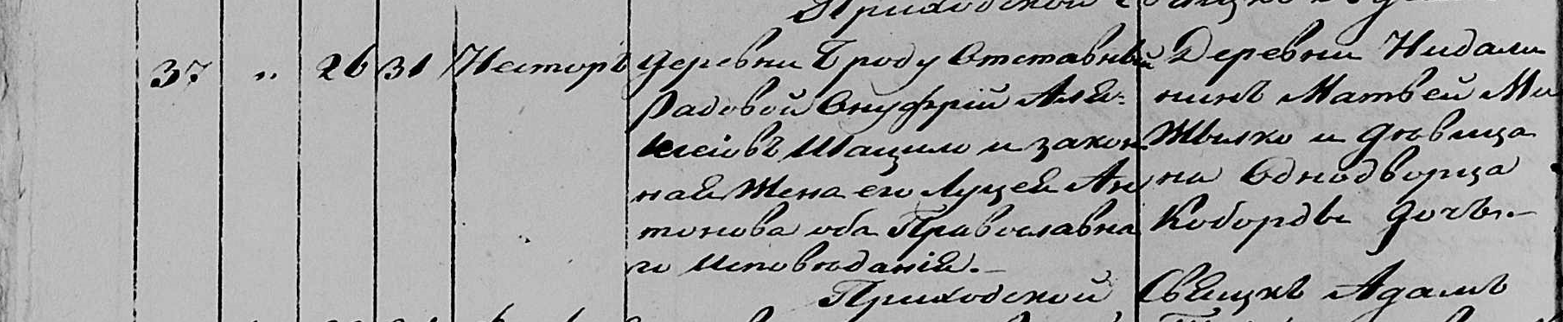 Приходской
37 " 26 31 Несторъ
Деревни Броду Отставный
Рядовой Онуфрій Алек-
сѣевъ Шацило и закон
ная Жена его Луцея Ан
тонова оба Православна
го исповѣданія.-
Деревни
нинъ Матвей Ми
и дѣвица
на Однодворца
дочь.-
Приходской Свящкъ Адамъ